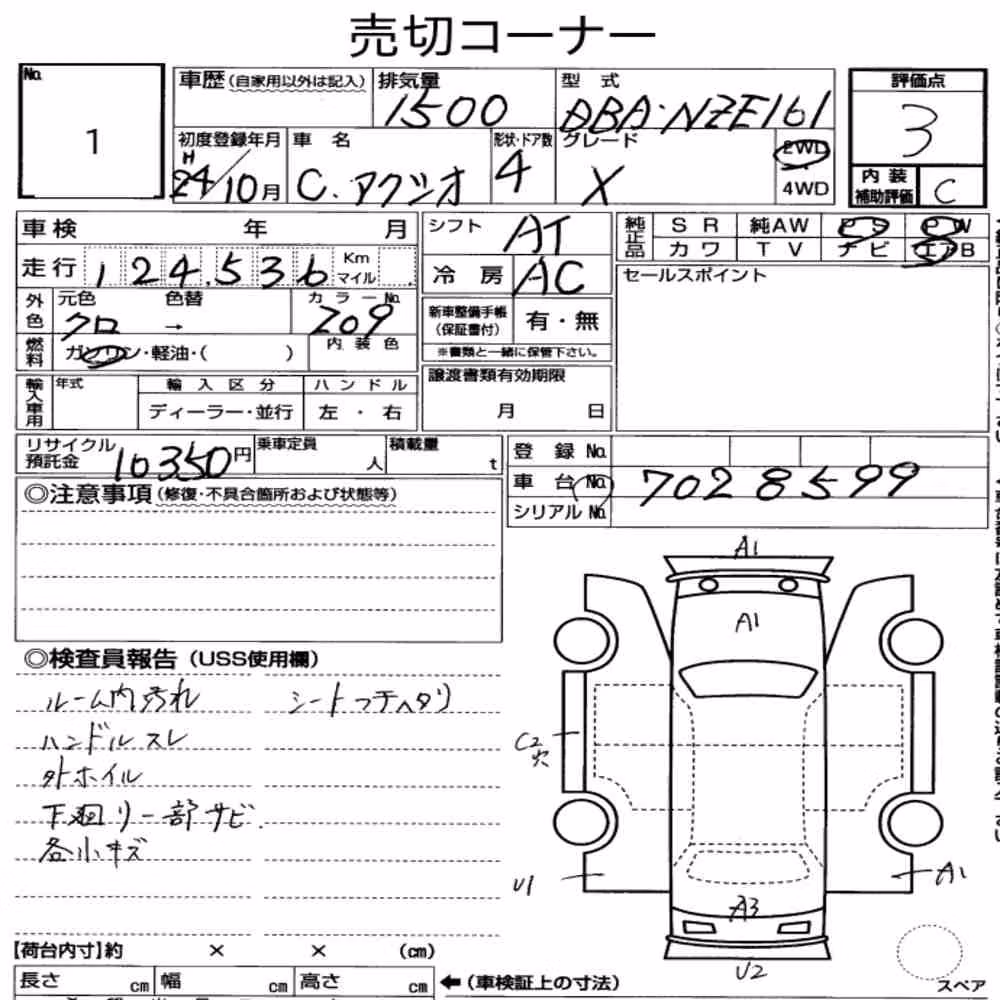 売切コーナー
No. 1
車歴 (自家用以外は記入) 排気量 1500 型 式 DBA・NZE161 評価点 3
初度登録年月 H24/10月 車 名 C.アクシオ 形状・ドア数 4 グレード X 2WD 4WD
内 装 補助評価 C
車検 年 月 シフト AT 純正品 S R 純AW P S P W
走行 124,536 Km マイル 冷 房 AC カワ T V ナビ エアB
セールスポイント
外色 元色 クロ 色替 → カラーNo. 209 新車整備手帳 (保証書付) 有・無
燃料 ガソリン・軽油・( ) 内 装 色 ※書類と一緒に保管下さい。
輸入車用 年式 輸 入 区 分 ハ ン ド ル 譲渡書類有効期限
ディーラー・並行 左 ・ 右 月 日
リサイクル預託金 10350円 乗車定員 人 積載量 t 登 録 No.
車 台 No. 7028599
シリアル No.
◎注意事項 (修復・不具合箇所および状態等)
◎検査員報告 (USS使用欄)
ルーム内汚れ シートフチヘタリ
ハンドルスレ
外ホイル
下廻リ一部サビ.
各小キズ
A1
A1
C2
穴
U1
A1
A3
U2
スペア
【荷台内寸】約 × × (cm)
長さ cm 幅 cm 高さ cm ←(車検証上の寸法)